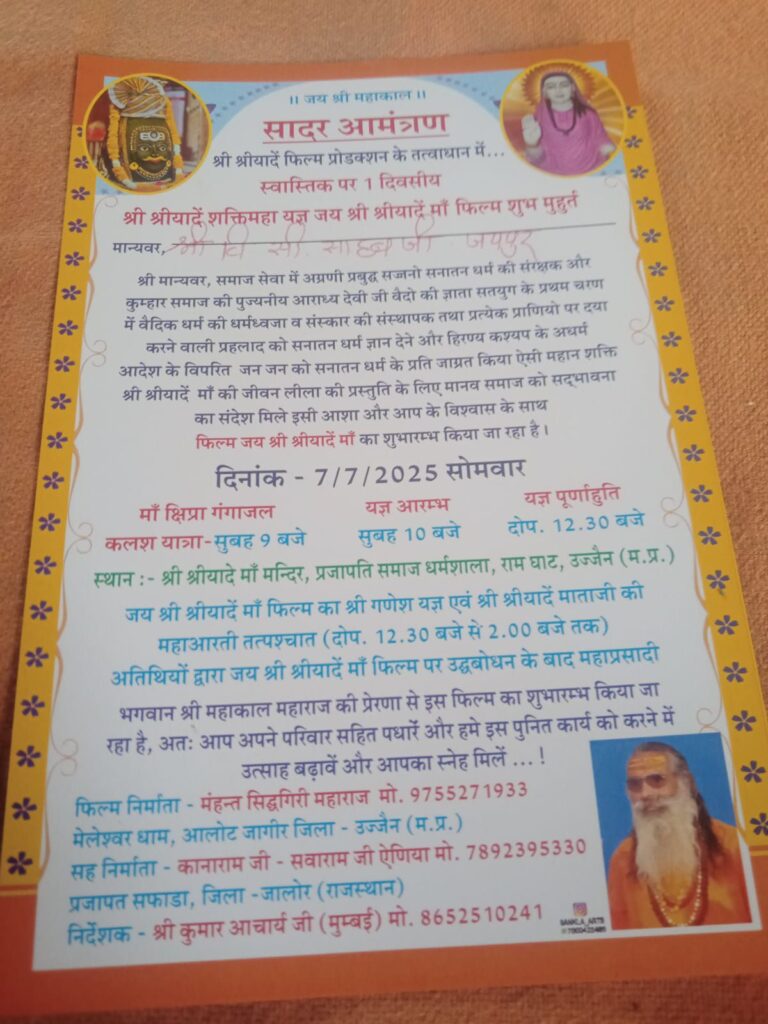 ।। जय श्री महाकाल ।।
सादर आमंत्रण
श्री श्रीयादें फिल्म प्रोडक्शन के तत्वाधान में...
स्वास्तिक पर 1 दिवसीय
श्री श्रीयादें शक्तिमहा यज्ञ जय श्री श्रीयादें माँ फिल्म शुभ मुहुर्त
मान्यवर, श्री वि सी. साहब जी जयपुर
श्री मान्यवर, समाज सेवा में अग्रणी प्रबुद्ध सज्जनो सनातन धर्म की संरक्षक और
कुम्हार समाज की पुज्यनीय आराध्य देवी जी वैदो की ज्ञाता सतयुग के प्रथम चरण
में वैदिक धर्म की धर्मध्वजा व संस्कार की संस्थापक तथा प्रत्येक प्राणियो पर दया
करने वाली प्रहलाद को सनातन धर्म ज्ञान देने और हिरण्य कश्यप के अधर्म
आदेश के विपरित जन जन को सनातन धर्म के प्रति जाग्रत किया ऐसी महान शक्ति
श्री श्रीयादें माँ की जीवन लीला की प्रस्तुति के लिए मानव समाज को सद्‌भावना
का संदेश मिले इसी आशा और आप के विश्वास के साथ
फिल्म जय श्री श्रीयादें माँ का शुभारम्भ किया जा रहा है।
दिनांक - 7/7/2025 सोमवार
माँ क्षिप्रा गंगाजल यज्ञ आरम्भ यज्ञ पूर्णाहुति
कलश यात्रा-सुबह 9 बजे सुबह 10 बजे दोप. 12.30 बजे
स्थान :- श्री श्रीयादे माँ मन्दिर, प्रजापति समाज धर्मशाला, राम घाट, उज्जैन (म.प्र.)
जय श्री श्रीयादें माँ फिल्म का श्री गणेश यज्ञ एवं श्री श्रीयादें माताजी की
महाआरती तत्पश्चात (दोप. 12.30 बजे से 2.00 बजे तक)
अतिथियों द्वारा जय श्री श्रीयादें माँ फिल्म पर उद्धबोधन के बाद महाप्रसादी
भगवान श्री महाकाल महाराज की प्रेरणा से इस फिल्म का शुभारम्भ किया जा
रहा है, अतः आप अपने परिवार सहित पधारें और हमे इस पुनित कार्य को करने में
उत्साह बढ़ावें और आपका स्नेह मिलें ...!
फिल्म निर्माता - मंहन्त सिद्धगिरी महाराज मो. 9755271933
मेलेश्वर धाम, आलोट जागीर जिला - उज्जैन (म.प्र.)
सह निर्माता - कानाराम जी - सवाराम जी ऐणिया मो. 7892395330
प्रजापत सफाडा, जिला -जालोर (राजस्थान)
निर्देशक - श्री कुमार आचार्य जी (मुम्बई) मो. 8652510241
SANKLA_ARTS